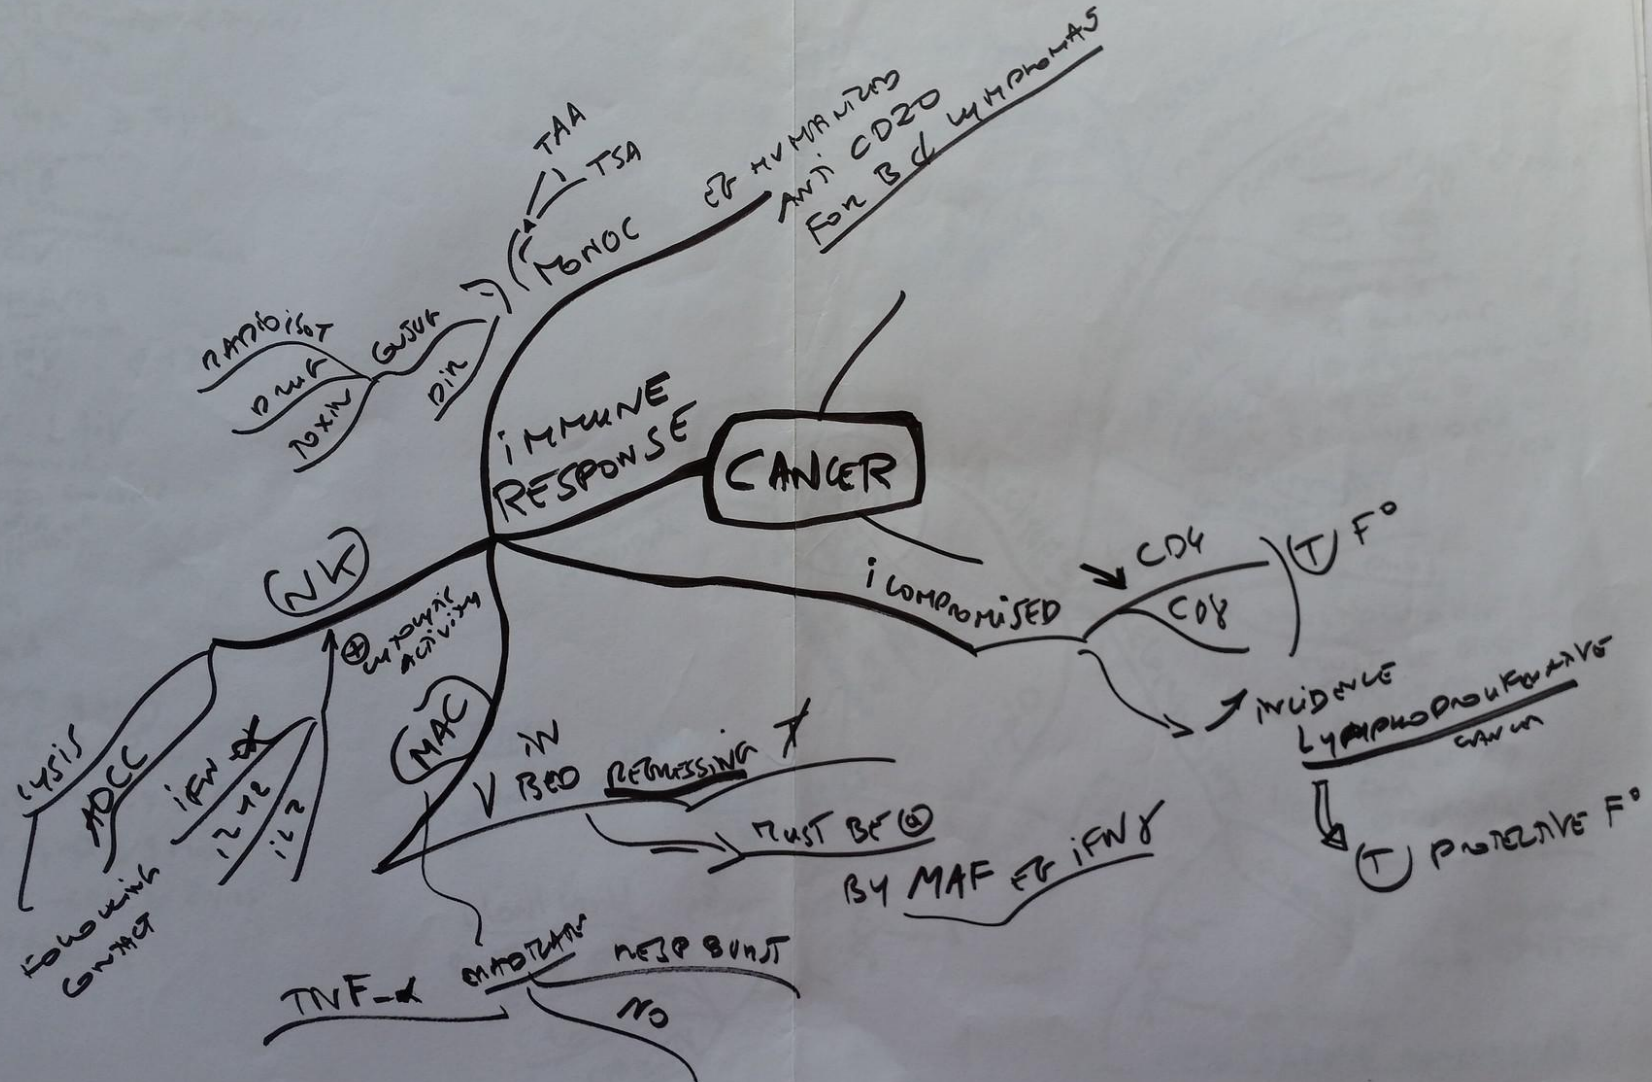 CANCER
IMMUNE
RESPONSE
MONOC
TAA
TSA
EG HUMANIZED
ANTI CD20
FOR B LYMPHOMAS
CONJUG
RADIOISOT
DRUG
TOXIN
DIR
NK
LYSIS
FOLLOWING
CONTACT
ADCC
⊕
CYTOLYTIC
ACTIVITY
IFN-α
IL12
IL2
MAC
IN
BED REGRESSING T
MUST BE ⊕
BY MAF EG IFNγ
TNF-α
RESP BURST
NO
I COMPROMISED
↘ CD4
CD8
T F°
↗ INCIDENCE
LYMPHOPROLIFERATIVE
CANCER
T PROTECTIVE F°